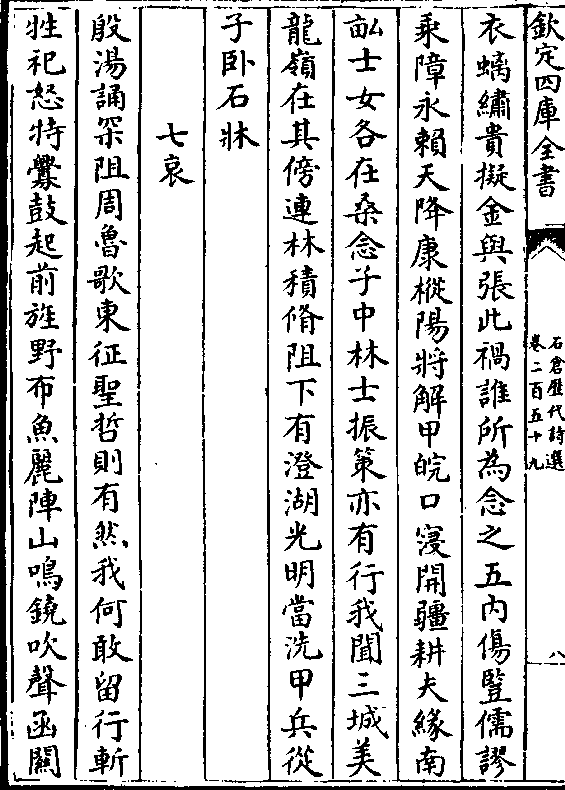 欽定四庫全書
石倉歷代詩選
卷二百五十九
八
衣螭繡貴擬金與張此禍誰所為念之五內傷豎儒謬
乘障永賴天降康樅陽將解甲皖口寖開疆耕夫緣南
畝士女各在桑念子中林士振策亦有行我聞三城美
龍嶺在其傍連林積脩阻下有澄湖光明當洗甲兵從
子卧石牀
七哀
殷湯誦罙阻周魯歌東征聖哲則有然我何敢留行斬
牲祀怒特釁鼓起前旌野布魚麗陣山鳴鐃吹聲函關